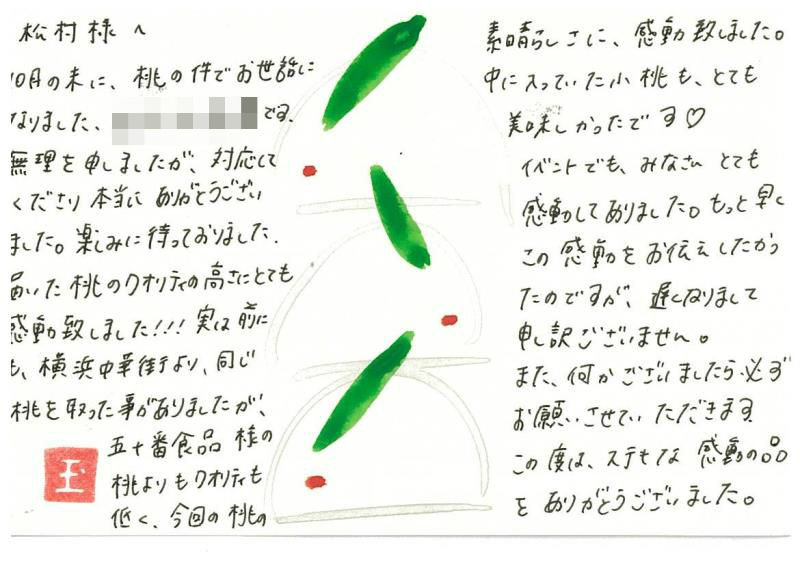 松村様へ
10月の末に、桃の件でお世話に
なりました、
です。
無理を申しましたが、対応して
くださり本当にありがとうござい
ました。楽しみに待っておりました。
届いた桃のクオリティの高さにとても
感動致しました!!!実は前に
も、横浜中華街より、同じ
桃を取った事がありましたが、
五十番食品様の
桃よりもクオリティも
低く、今回の桃の
素晴らしさに、感動致しました。
中に入っていた小桃も、とても
美味しかったです♡
イベントでも、みなさんとても
感動してありました。もっと早く
この感動をお伝えしたかっ
たのですが、遅くなりまして
申し訳ございません。
また、何かございましたら必ず
お願いさせていただきます。
この度は、ステキな感動の品
をありがとうございました。